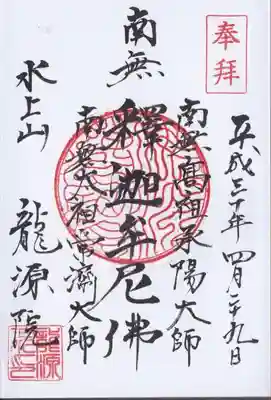 奉拜
平成三十年四月二十九日
南無高祖承陽大師
南無釋迦牟尼佛
南無太祖常濟大師
水上山
龍源院